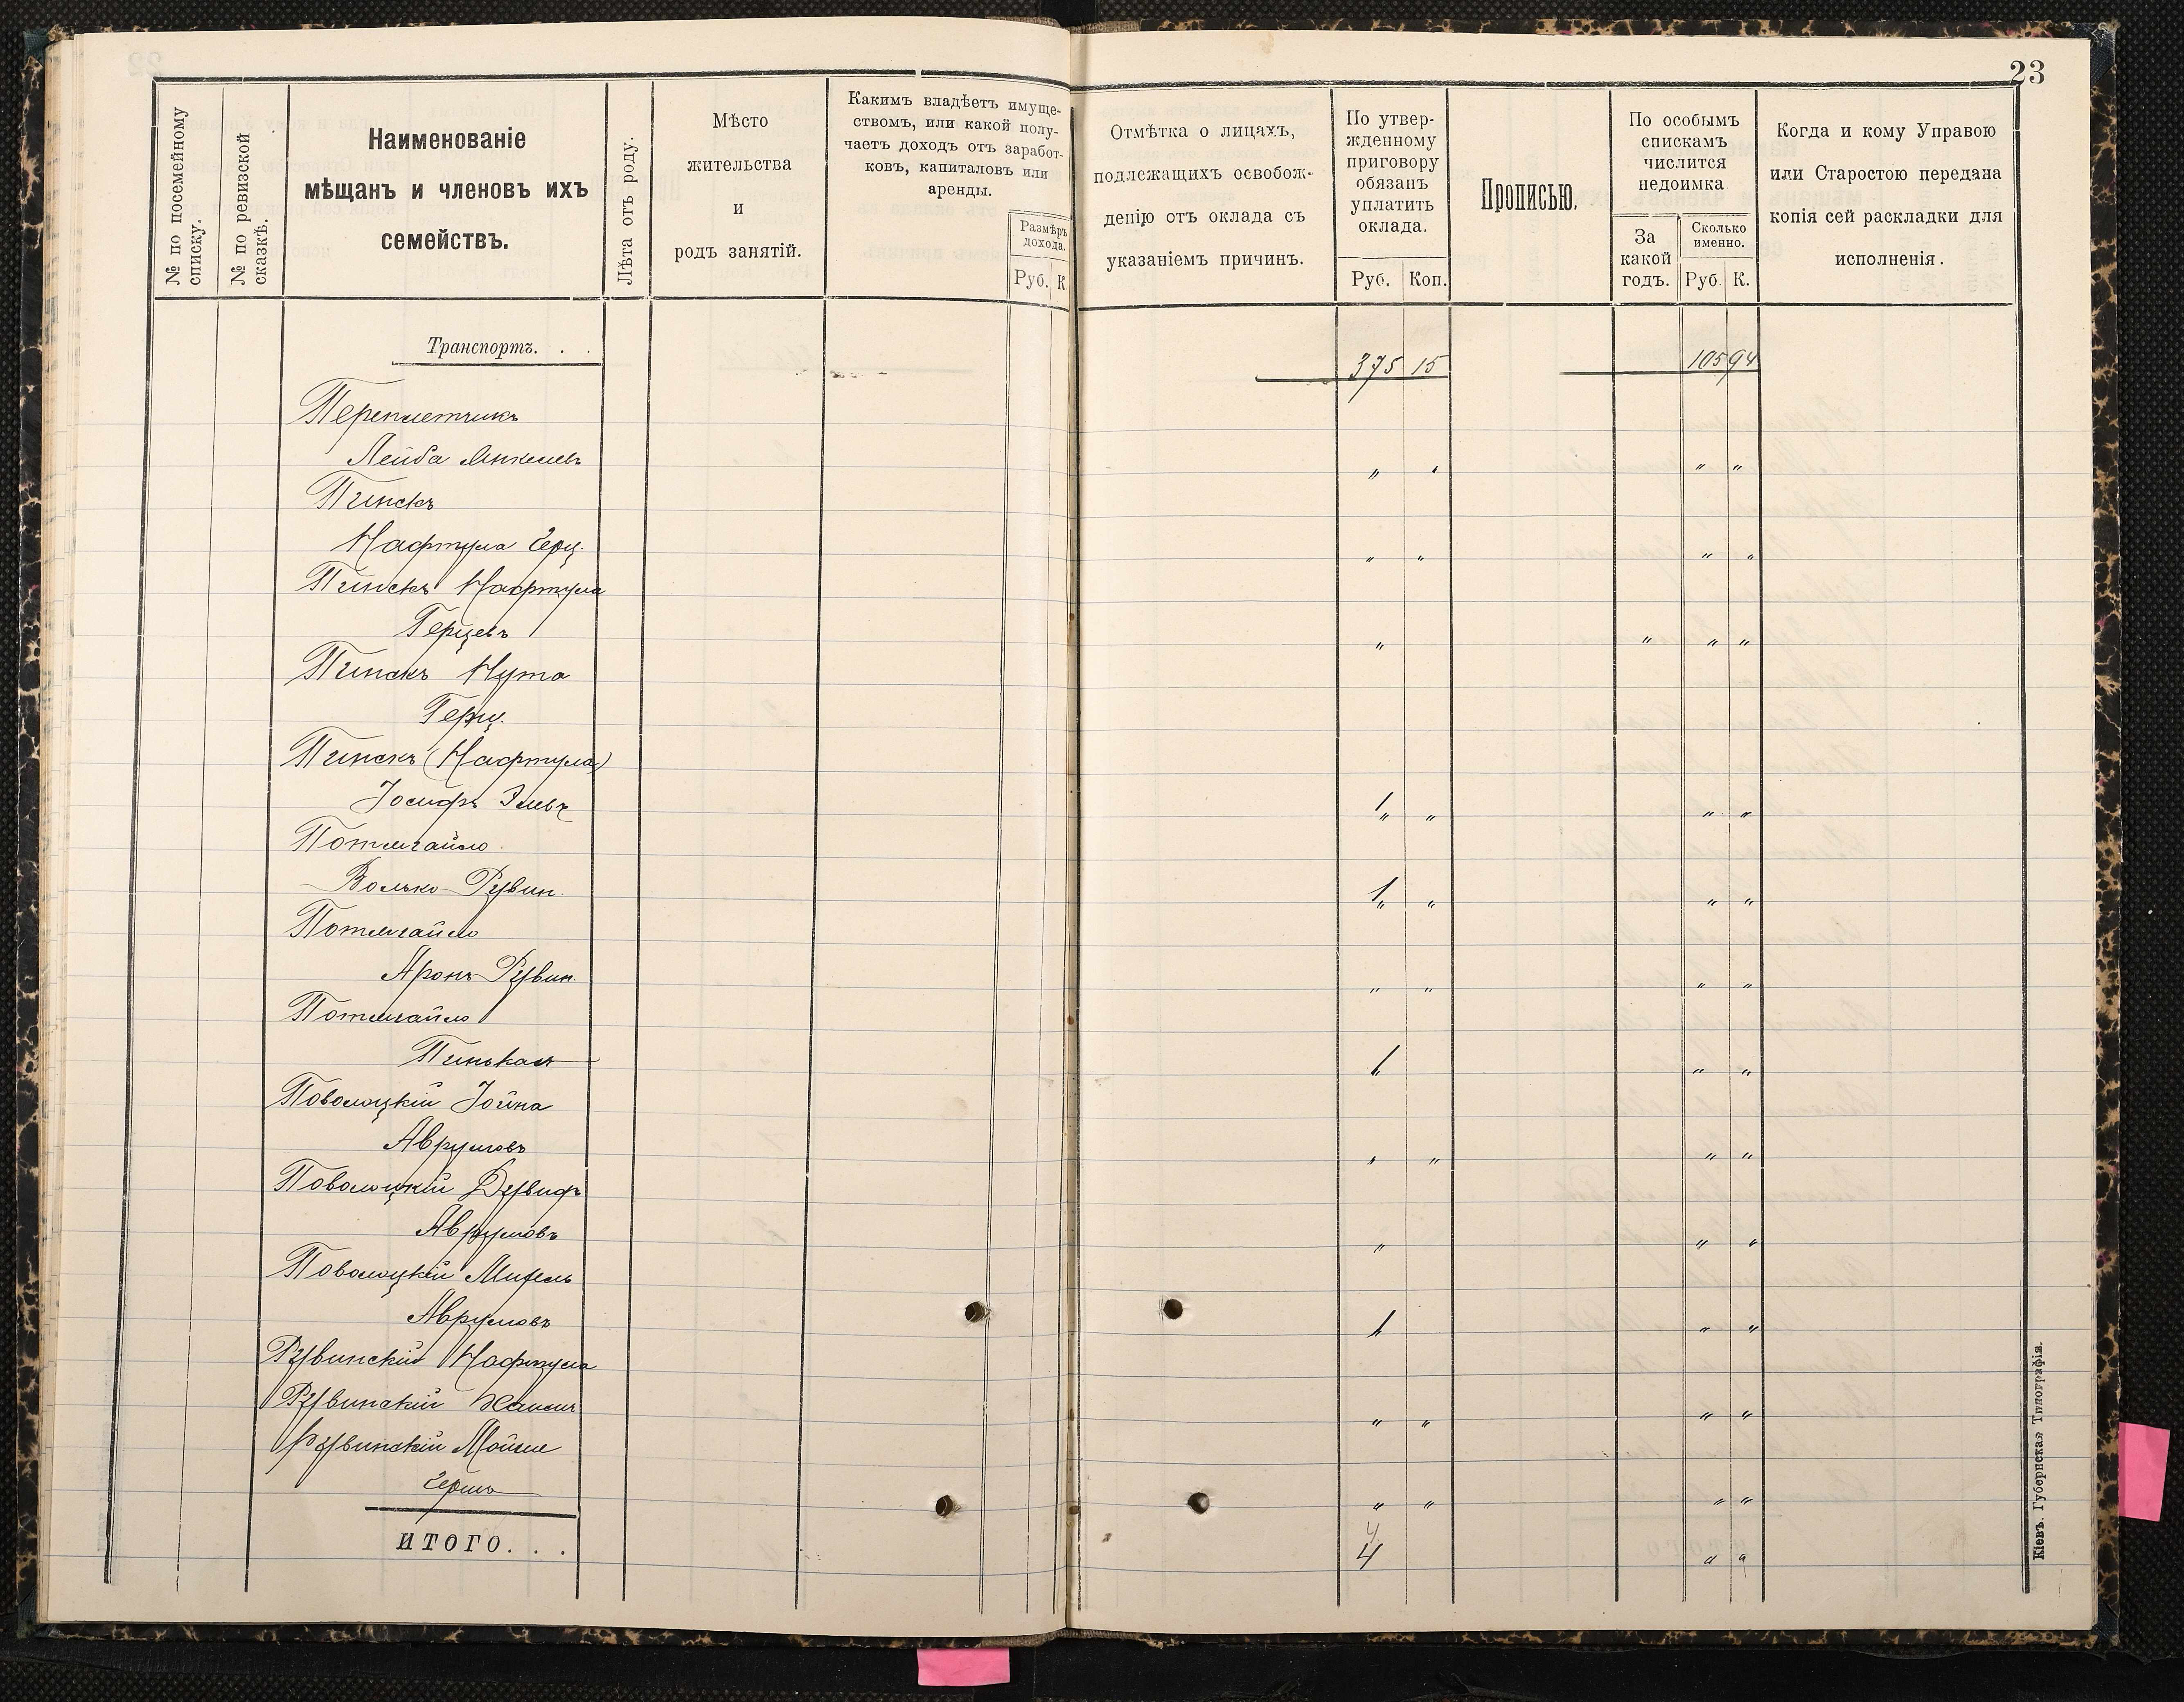 23
№ по посемейному списку.
№ по ревизской сказкѣ.
Наименованіе
мѣщанъ и членовъ ихъ
семействъ.
Лѣта отъ роду.
Мѣсто
жительства
и
родъ занятій.
Какимъ владѣетъ имуще-
ствомъ, или какой полу-
чаетъ доходъ отъ заработ-
ковъ, капиталовъ или
аренды.
Размѣръ
дохода.
Руб. К
Отмѣтка о лицахъ,
подлежащихъ освобож-
денію отъ оклада съ
указаніемъ причинъ.
По утвер-
жденному
приговору
обязанъ
уплатить
оклада.
Руб. Коп.
Прописью.
По особымъ
спискамъ
числится
недоимка
За
какой
годъ.
Сколько
именно.
Руб. К.
Когда и кому Управою
или Старостою передана
копія сей раскладки для
исполненія.
Транспортъ. . . 375 15 105 94
Переплетчикъ
Лейба Янкелевъ " " " "
Пинскъ
Нафтула Герц. " " " "
Пинскъ Нафтула
Герцевъ " " " "
Пинскъ Нута
Герц.
Пинскъ (Нафтула)
Іосифъ 1 " " "
Потличайло
Волько Рувин. 1 " " "
Потличайло
Аронъ Рувин. " " " "
Потличайло
Пинькас 1 " "
Поволоцкій Іойна
Аврумовъ " " " "
Поволоцкій Дувидъ
Аврумовъ " " "
Поволоцкій
Аврумовъ 1 " "
Рувинскій Нафтула
Рувинскій Хаимъ " " " "
Рувинскій Мойше
Герш " " " "
ИТОГО. . . 4 " "
4
Кіевъ. Губернская Типографія.